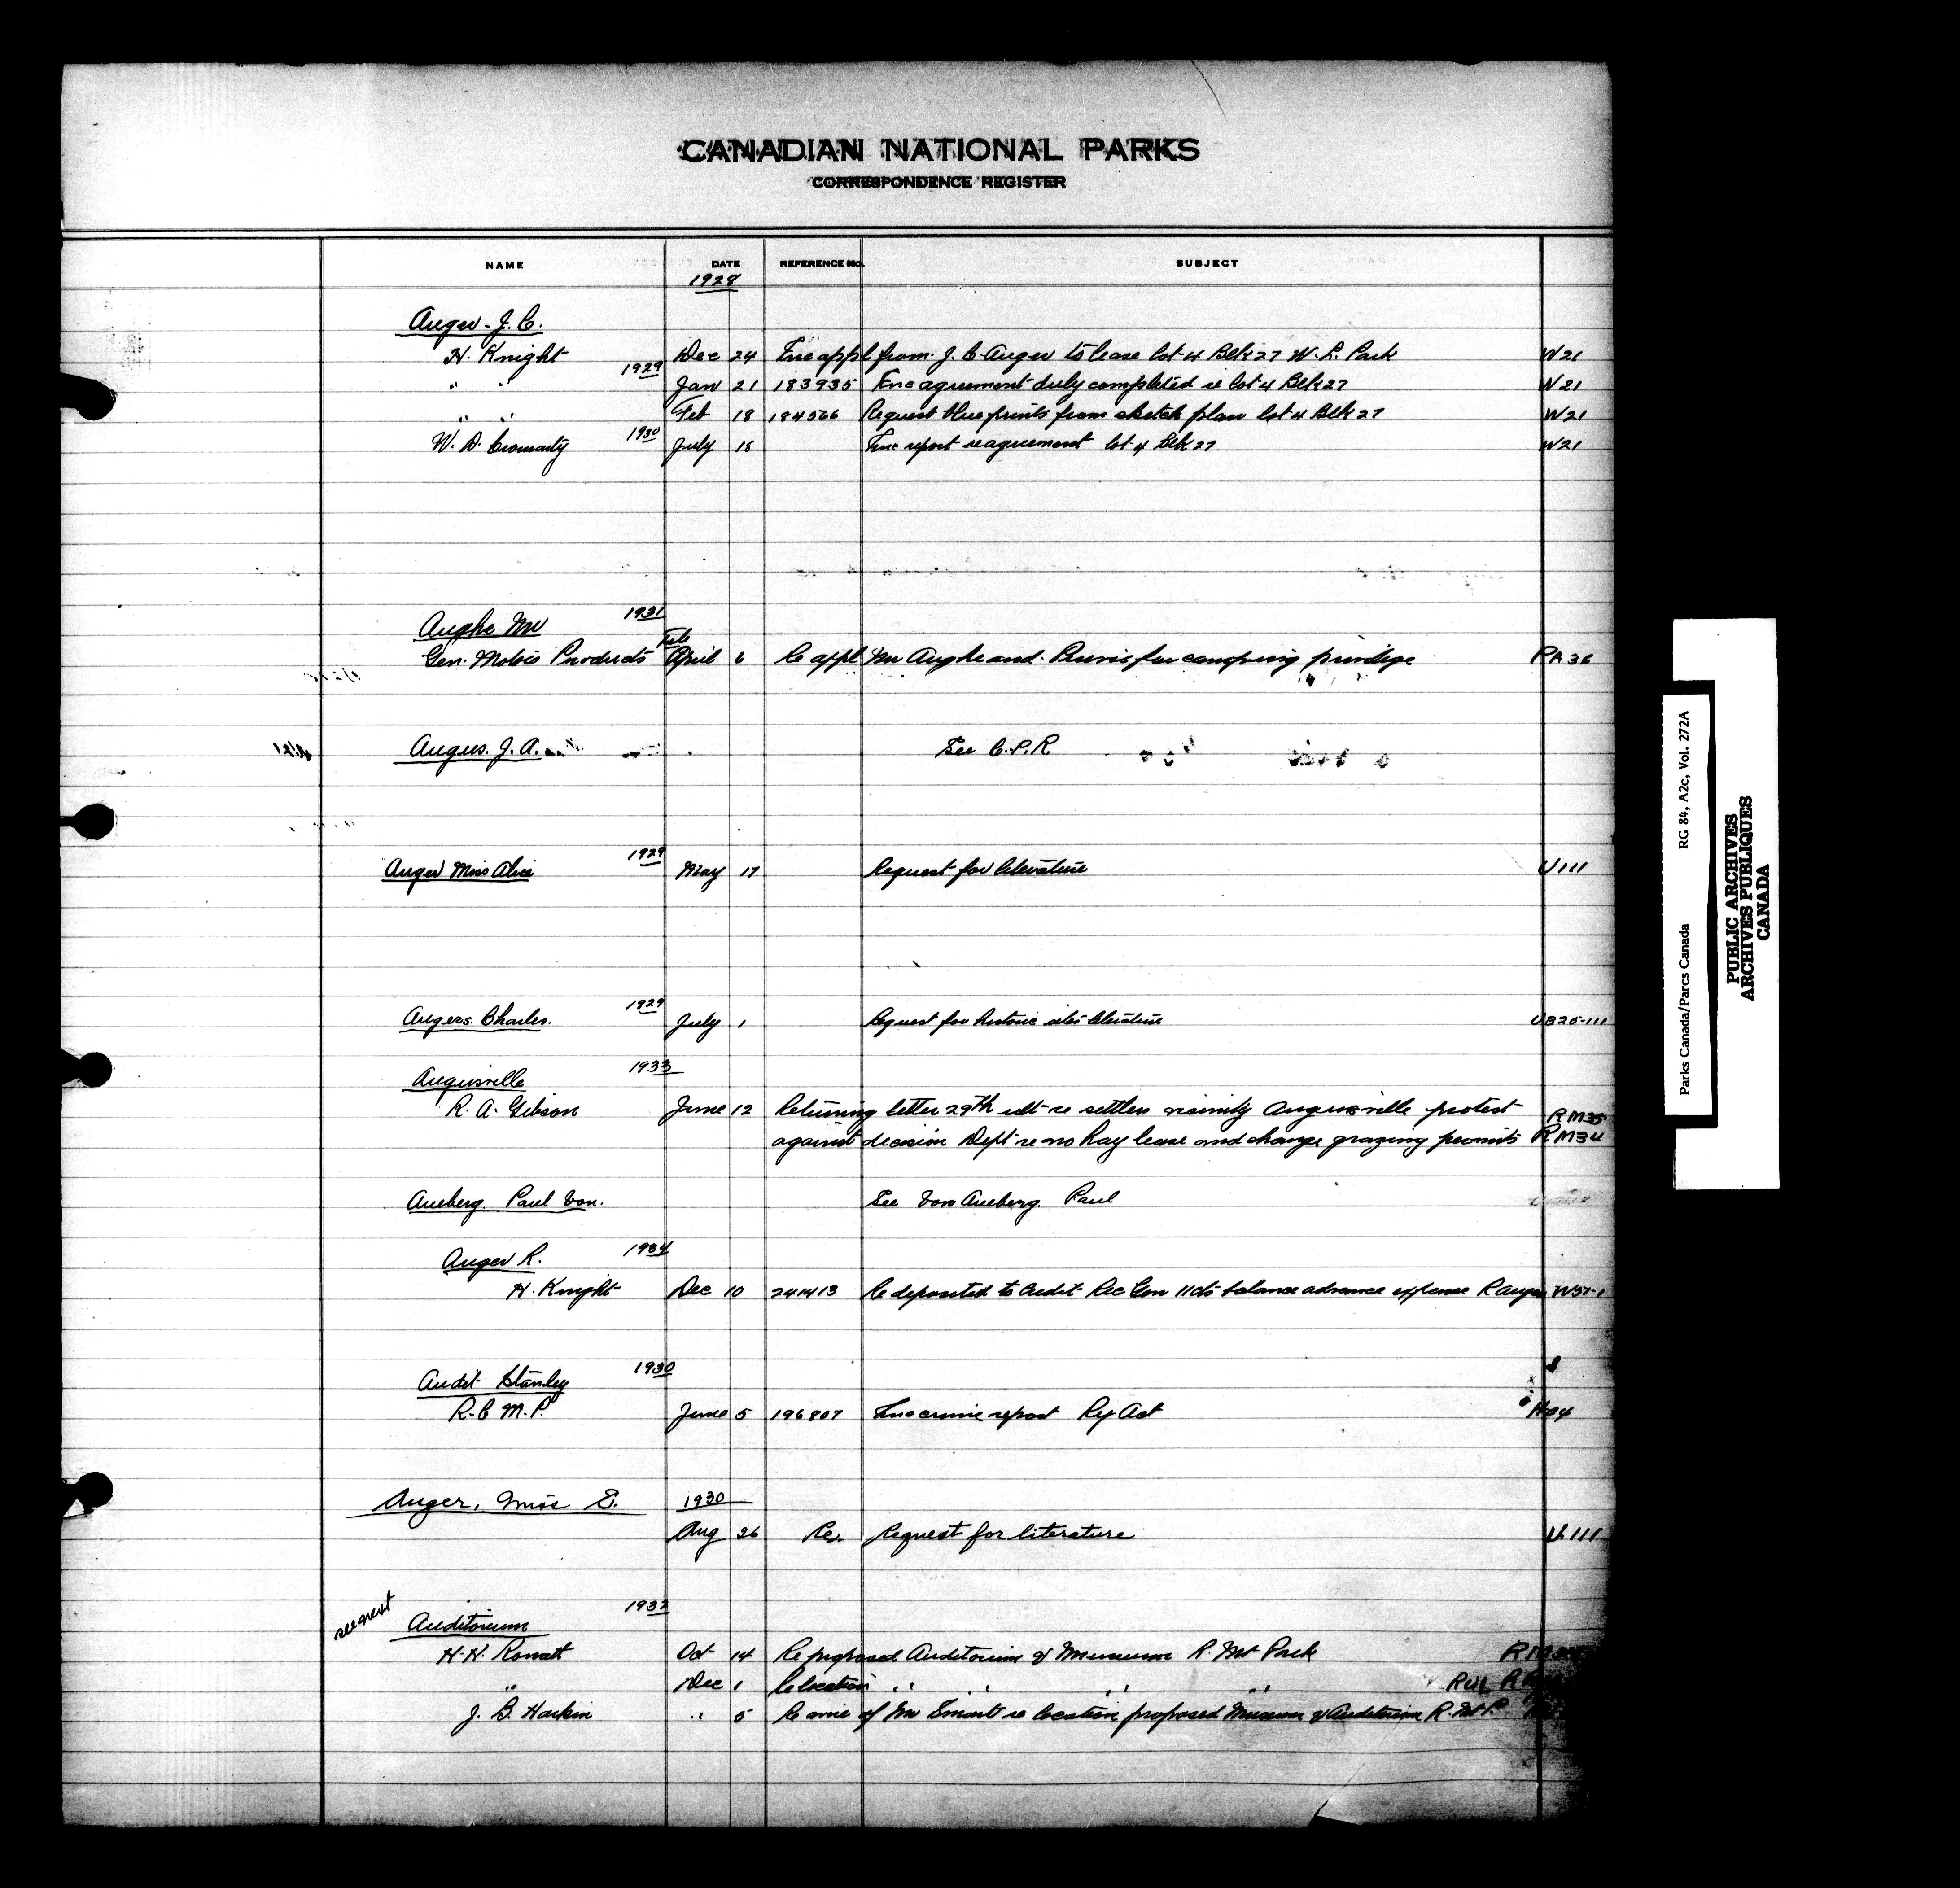 CANADIAN NATIONAL PARKS
CORRESPONDENCE REGISTER
NAME DATE REFERENCE NO. SUBJECT
1928
Auger. J. C.
H. Knight Dec 24 Enc appl from J. C. Auger to lease lot 4 Blk 27 W. L. Park W21
1929
" " Jan 21 183935 Enc agreement duly completed re lot 4 Blk 27 W21
" " Feb 18 184566 Request blue prints from sketch plan lot 4 Blk 27 W21
1930
W. D. Cromarty July 18 Enc report re agreement lot 4 Blk 27 W21
1931
Aughe Mr
Feb
Gen. Motors Products April 6 Re appl Mr Aughe and Purvis for camping privilege RA36
Angus. J. A. See C.P.R.
1929
Auger Miss Alice May 17 Request for literature U111
1929
Angers. Charles. July 1 Request for historic sites literature U325-111
1933
Angusville
R. A. Gibson June 12 Returning letter 29th ult re settlers vicinity Angusville protest RM35
against decision Dept re no hay lease and change grazing permits RM34
Aueberg. Paul Von. See Von Aueberg. Paul
1934
Auger R.
H. Knight Dec 10 241413 Re deposited to credit Rec Gen 11cts balance advance expense R Auger W57-1
1930
Audet Stanley
R.C.M.P. June 5 196807 Enc crime report Ry Act
Auger, Miss E. 1930
Aug 26 Re. Request for literature U.111
1932
see next
Auditorium
H. H. Ronath Oct 14 Re proposed Auditorium & Museum R. Mt Park
" Dec 1 Re location " " " "
J. B. Harkin " 5 Re of Mr Smart re location proposed Museum & Auditorium R. Mt P.
Parks Canada/Parcs Canada RG 84, A2c, Vol. 272A
PUBLIC ARCHIVES
ARCHIVES PUBLIQUES
CANADA